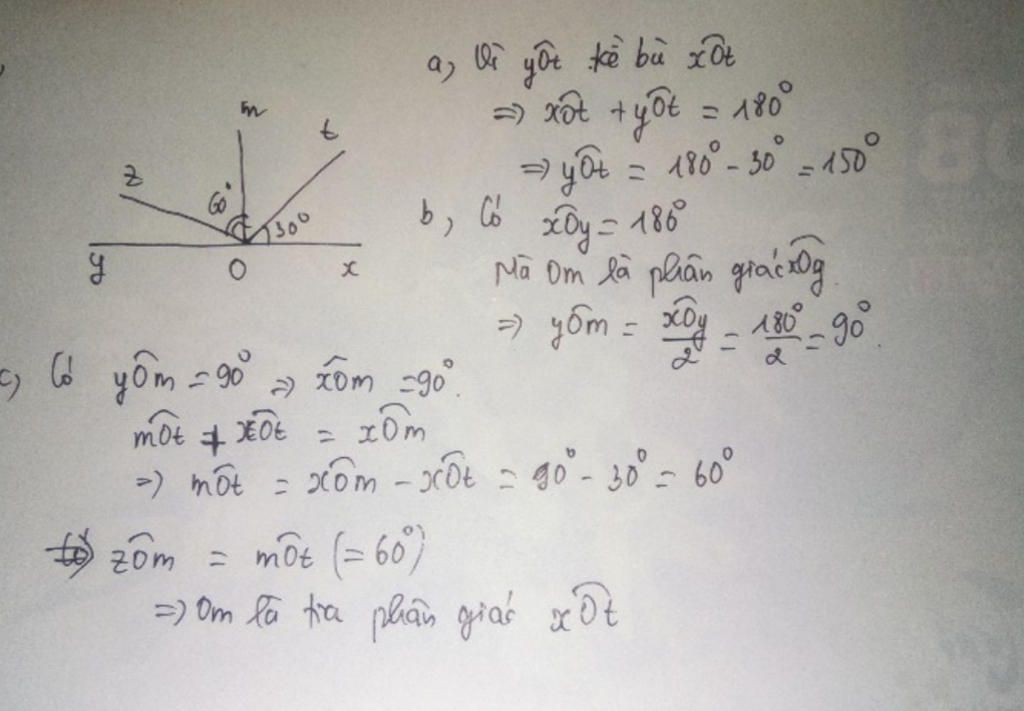 m
t
z
60°
30°
y
O
x
a, Vì yOt kề bù xOt
=> xOt + yOt = 180°
=> yOt = 180° - 30° = 150°
b, Có xOy = 180°
Mà Om là phân giác xOy
=> yOm = xOy/2 = 180°/2 = 90°.
c, Có yOm = 90° => xOm = 90°.
mOt + xOt = xOm
=> mOt = xOm - xOt = 90° - 30° = 60°
zOm = mOt (= 60°)
=> Om là tia phân giác xOt